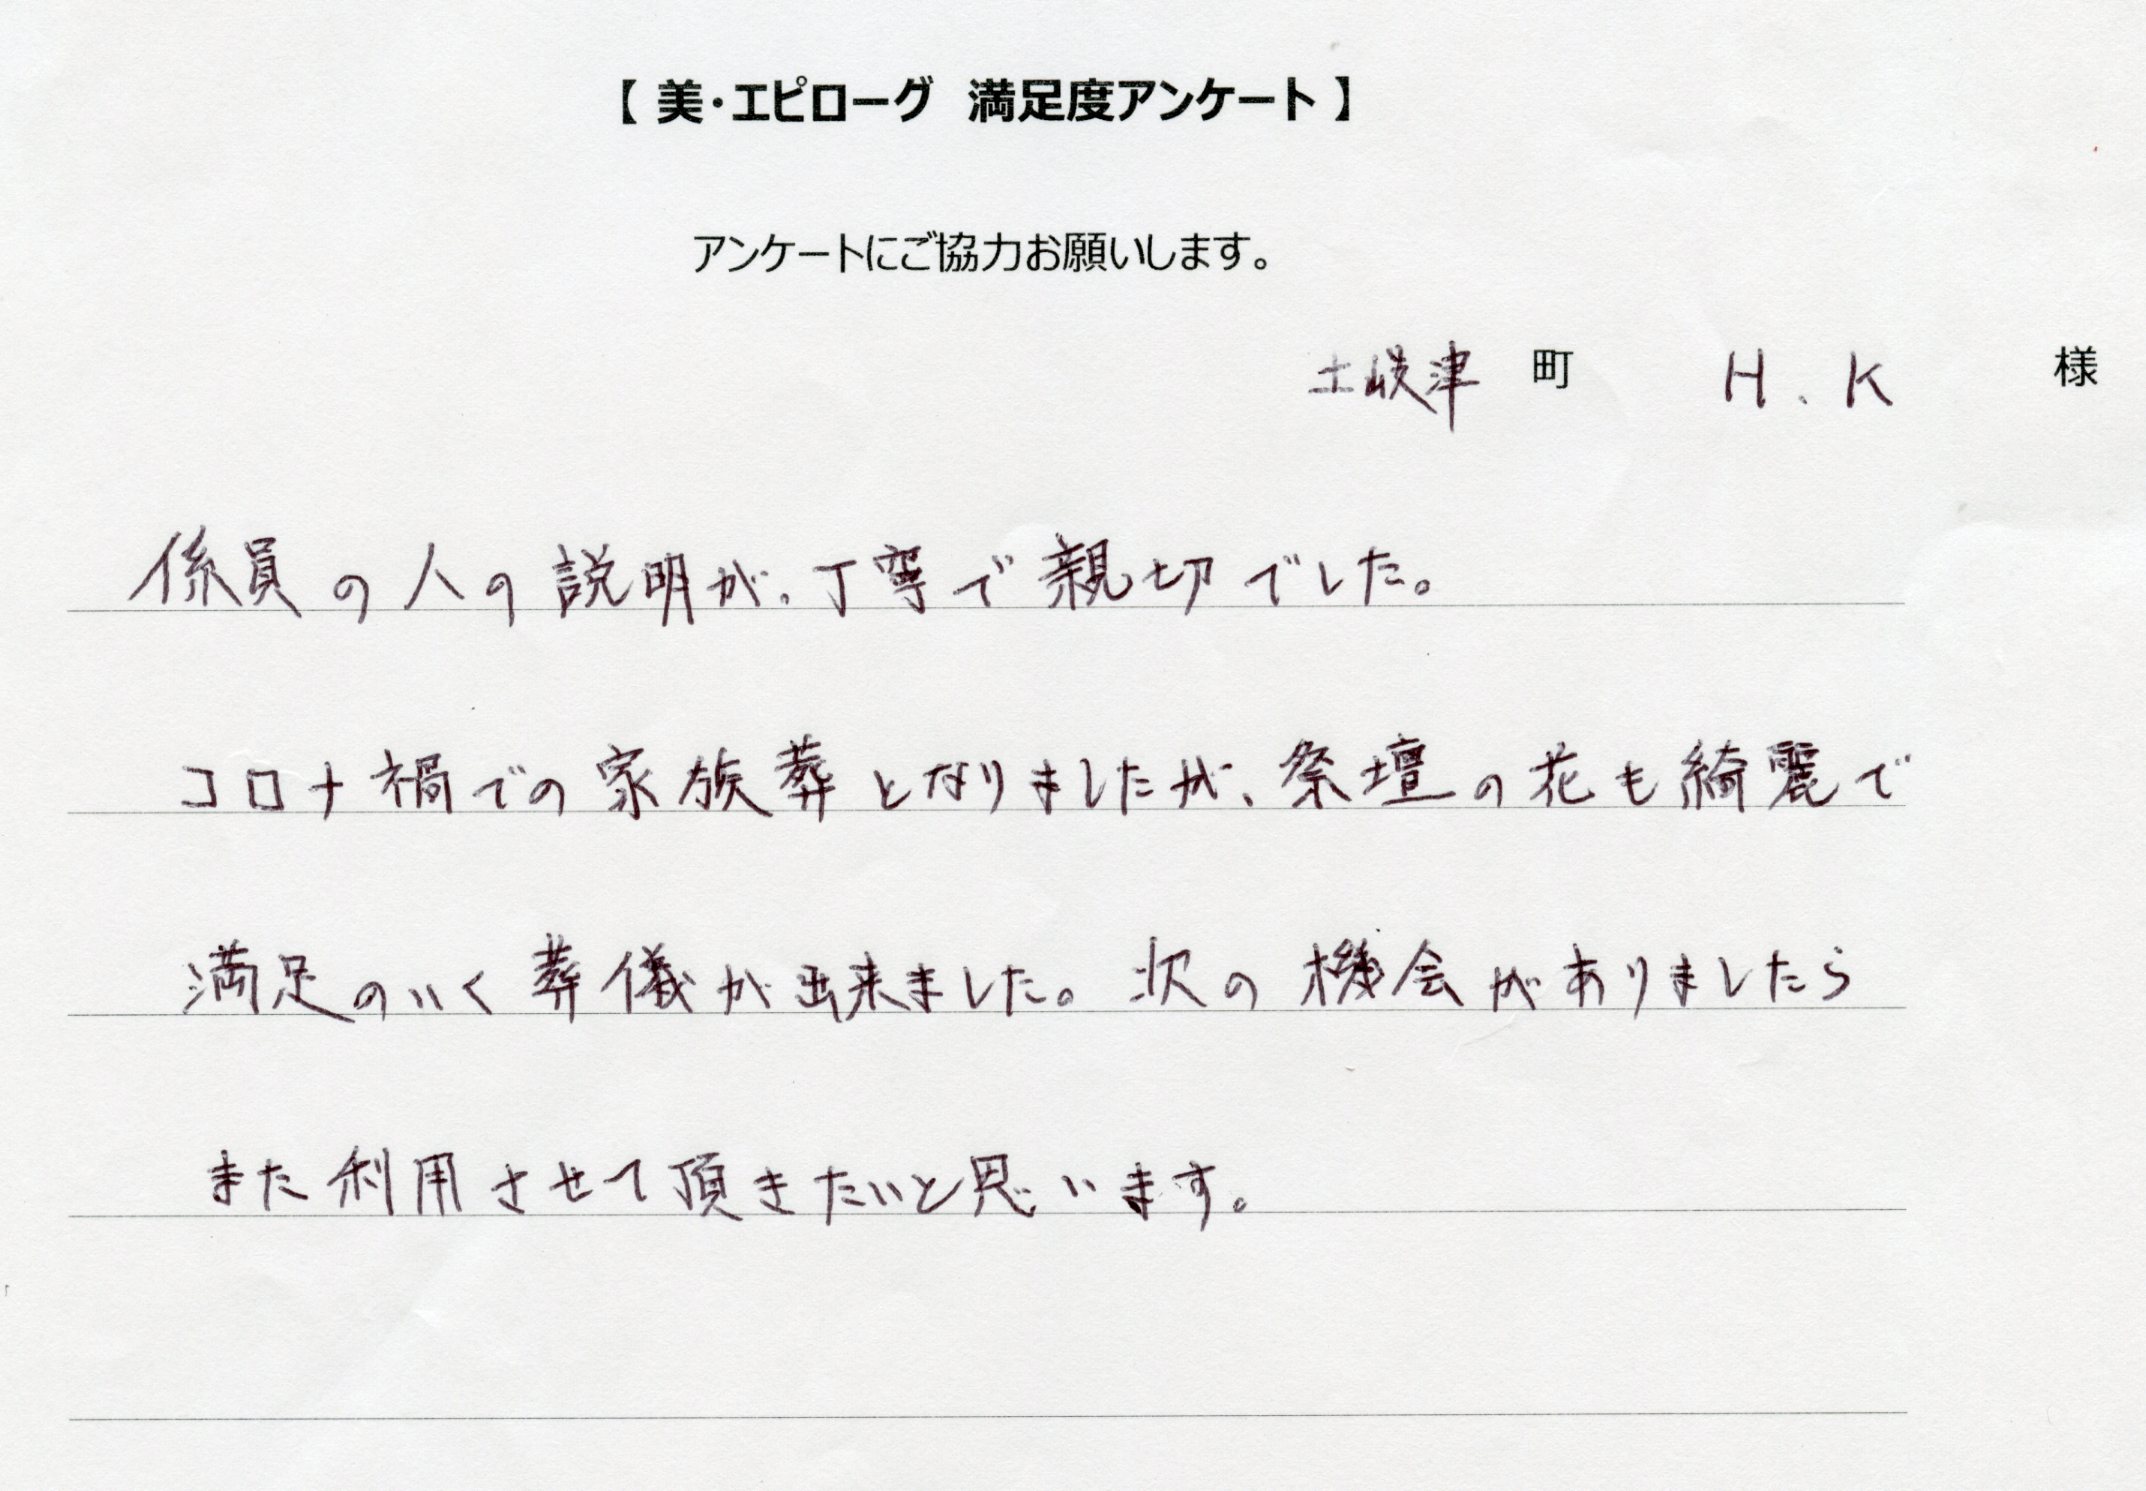 【 美・エピローグ 満足度アンケート 】
アンケートにご協力お願いします。
土岐津 町 H.K 様
係員の人の説明が。丁寧で親切でした。
コロナ禍での家族葬となりましたが、祭壇の花も綺麗で
満足のいく葬儀が出来ました。次の機会がありましたら
また利用させて頂きたいと思います。